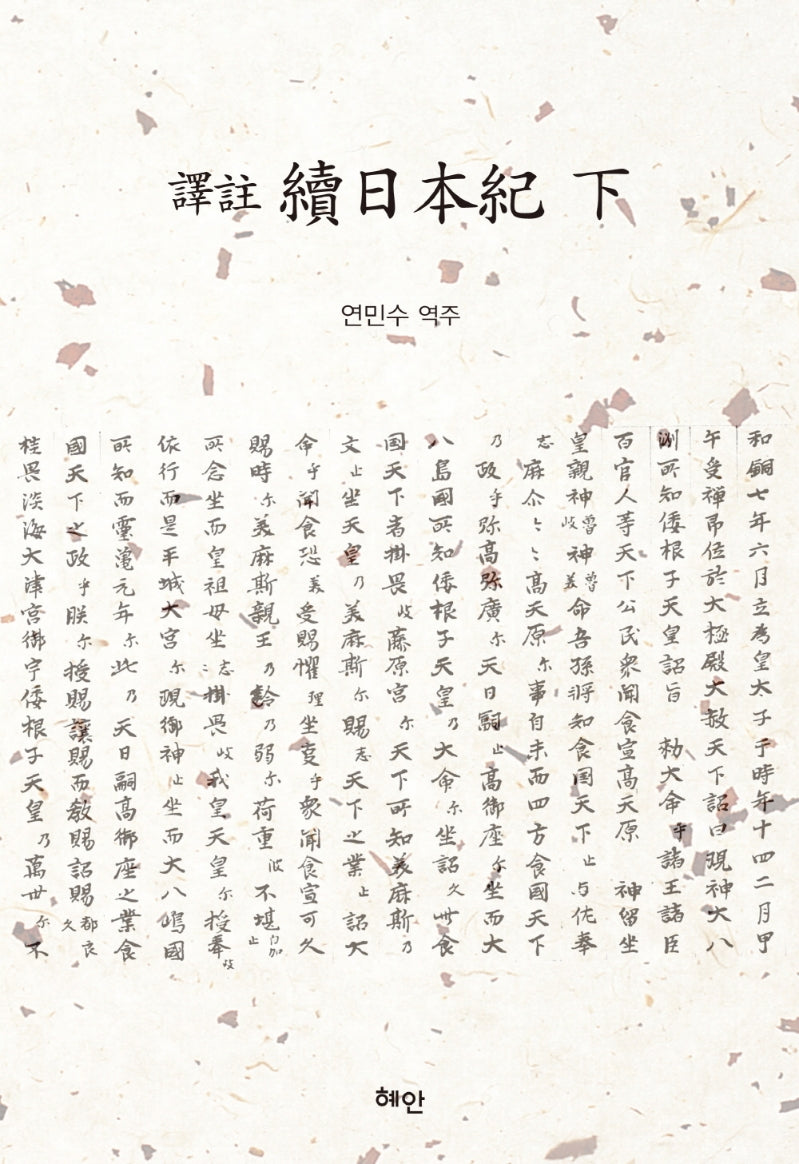 譯註 續日本紀 下
연민수 역주
和銅七年六月立為皇太子于時年十四二月甲
午受禪即位於大極殿大赦天下詔曰現神大八
洲所知倭根子天皇詔旨 勅大命乎諸王諸臣
百官人等天下公民衆聞食宣高天原 神留坐
皇親神魯岐神魯美命吾孫将知食国天下止与佐奉
志麻尒〻〻高天原尓事自未而四方食國天下
乃政乎弥高弥廣尓天日嗣止高御座尓坐而大
八島國所知倭根子天皇乃大命尓坐詔久此食
国天下者掛畏岐藤原宮尓天下所知美麻斯乃
文止坐天皇乃美麻斯尓賜志天下之業止詔大
命乎聞食恐美受賜懼理坐事乎衆聞食宣可久
賜時尓美麻斯親王乃齢乃弱尓荷重波不堪自加止
所念坐而皇祖母坐〻志掛畏岐我皇天皇尓授奉岐
依行而是平城大宮尓現御神止坐而大八嶋國
所知而靈龜元年尓此乃天日嗣高御座之業食
國天下之政乎朕尓授賜讓賜而教賜詔賜都良久
桂畏淡海大津宮御宇倭根子天皇乃萬世尓不
혜안